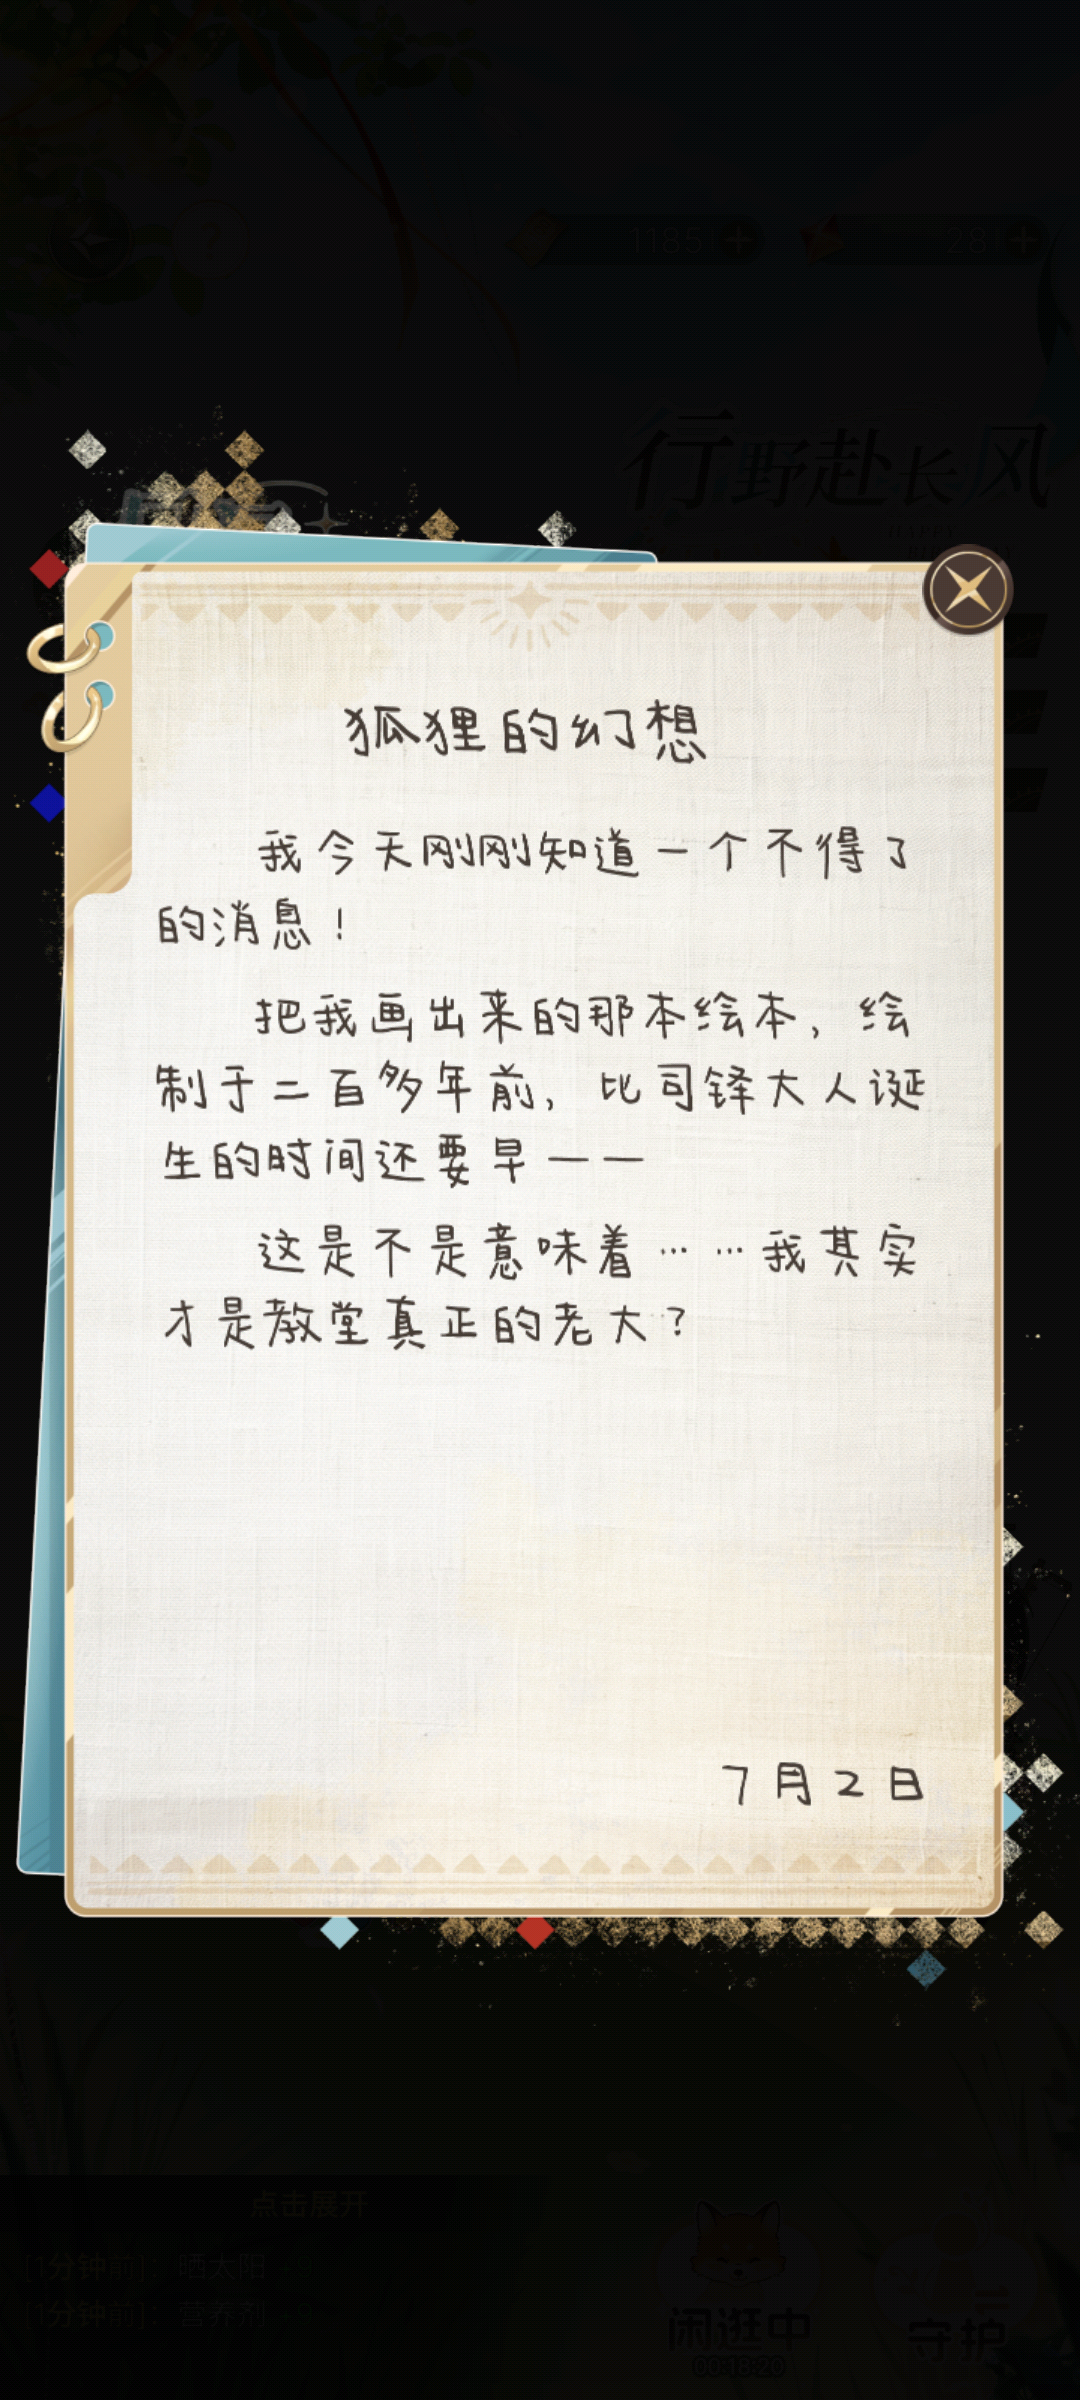 1185
28
行野赴长风
狐狸的幻想
我今天刚刚知道一个不得了
的消息！
把我画出来的那本绘本，绘
制于二百多年前，比司铎大人诞
生的时间还要早——
这是不是意味着……我其实
才是教堂真正的老大？
7月2日
点击展开
[1分钟前]：晒太阳
[1分钟前]：营养剂
闲逛中
守护
00:18:20